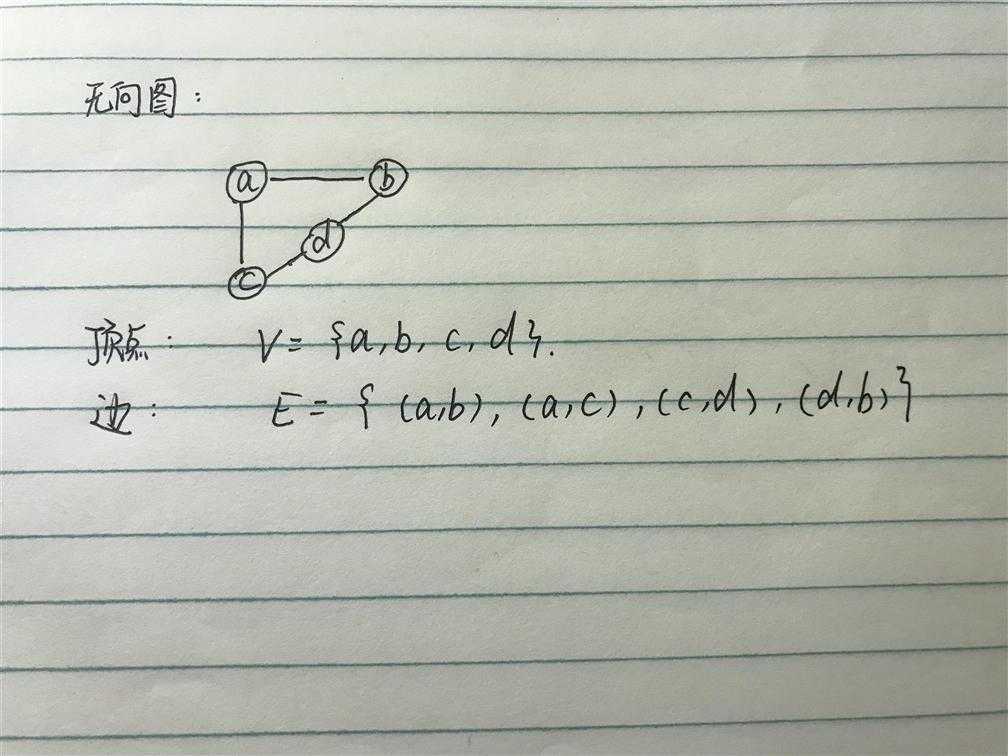 无向图：
a b
d
c
顶点： V = {a, b, c, d}.
边： E = { (a,b), (a,c), (c,d), (d,b) }